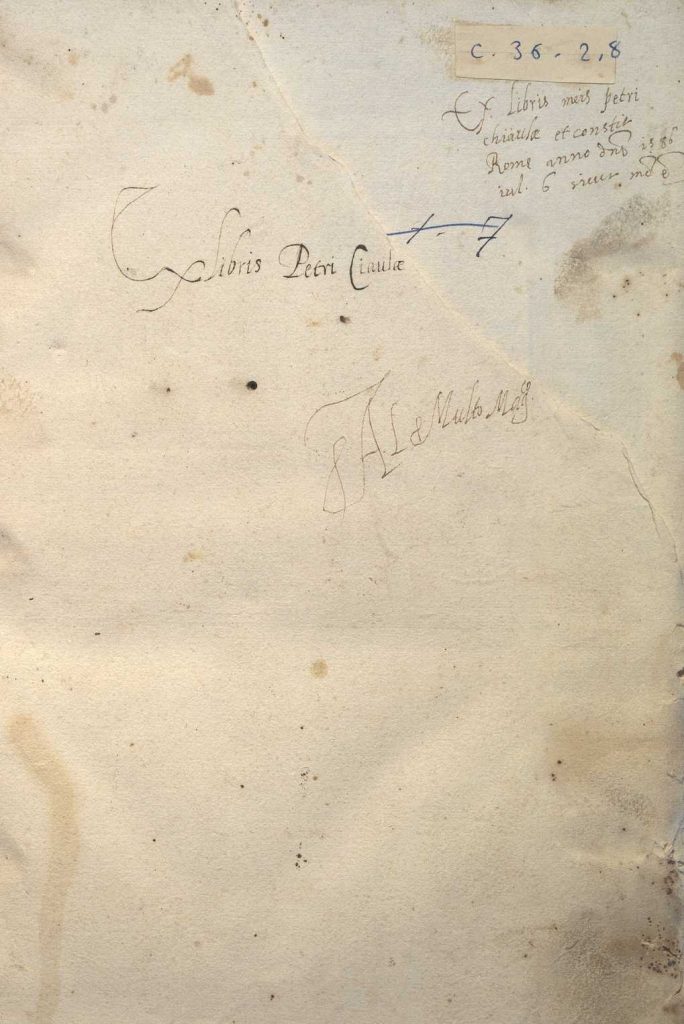 C. 36 - 2,8
Ex libris meis petri
chiaulæ et constit
Rome anno dnē 1586
iul. 6
+ - 7
Ex libris Petri Ciaulæ
AL & Multo Mag.